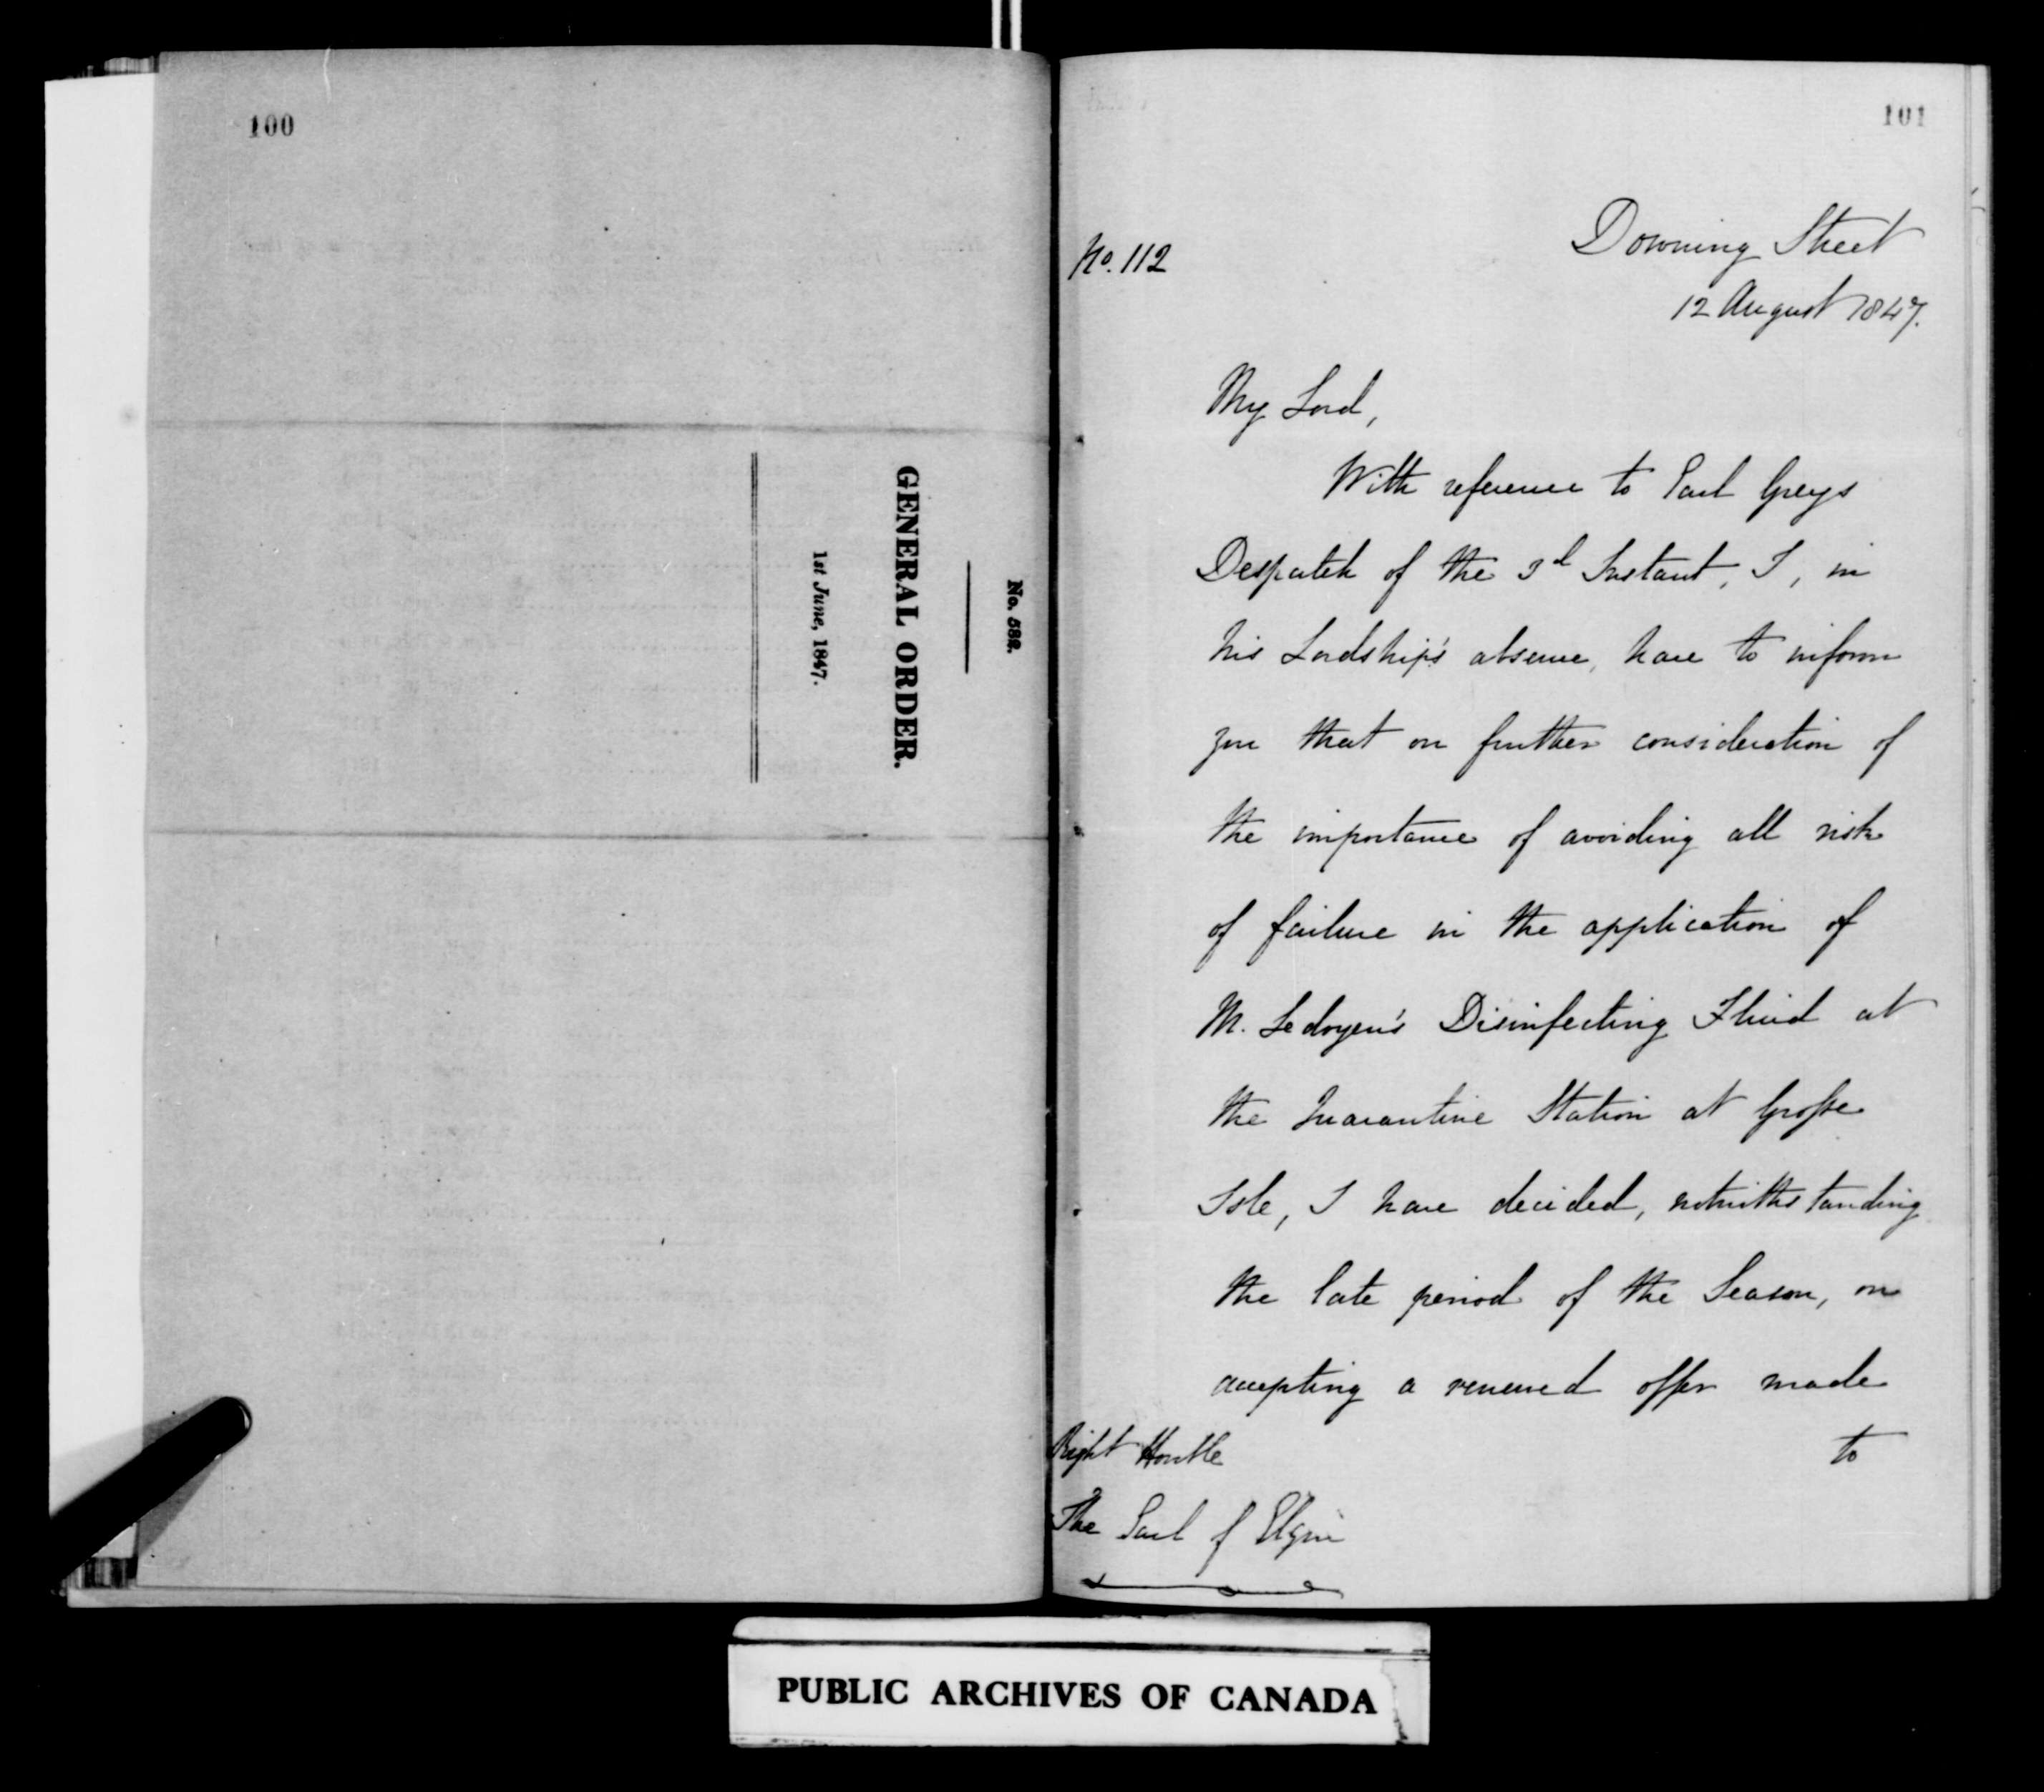 100
No. 582.
GENERAL ORDER.
1st June, 1847.
101
No. 112
Downing Street
12 August 1847.
My Lord,
With reference to Earl Greys
Despatch of the 3d Instant, I, in
his Lordship's absence, have to inform
you that on further consideration of
the importance of avoiding all risk
of failure in the application of
M. Ledoyen's Disinfecting Fluid at
the Quarantine Station at Grosse
Isle, I have decided, notwithstanding
the late period of the Season, on
accepting a renewed offer made
to
Right Honble
The Earl of Elgin
PUBLIC ARCHIVES OF CANADA